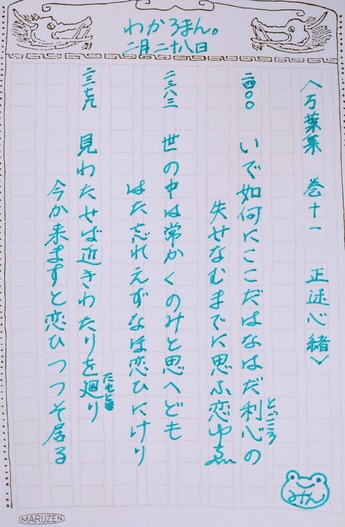 わかろまん。
二月二十八日
〈万葉集 巻十一 正述心緒〉
二四〇〇 いで如何にここだはなはだ利心の
とごころ
失せなむまでに思ふ恋ゆゑ
二三八三 世の中は常かくのみと思へども
はた忘れえずなほ恋ひにけり
二三七九 見わたせば近きわたりを廻り
たもとほ
今か来ますと恋ひつつそ居る
みん
MARUZEN